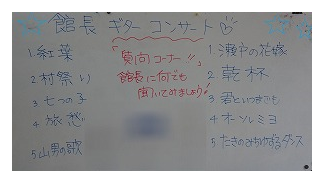 館長 ギター コンサート
1 紅葉
2 村祭り
3 七つの子
4 旅愁
5 山男の歌
「質向コーナー」!!
館長に何でも
聞いてみましょう!
1. 瀬戸の花嫁
2 乾杯
3 君といつまでも
4 オーソレミヨ
5